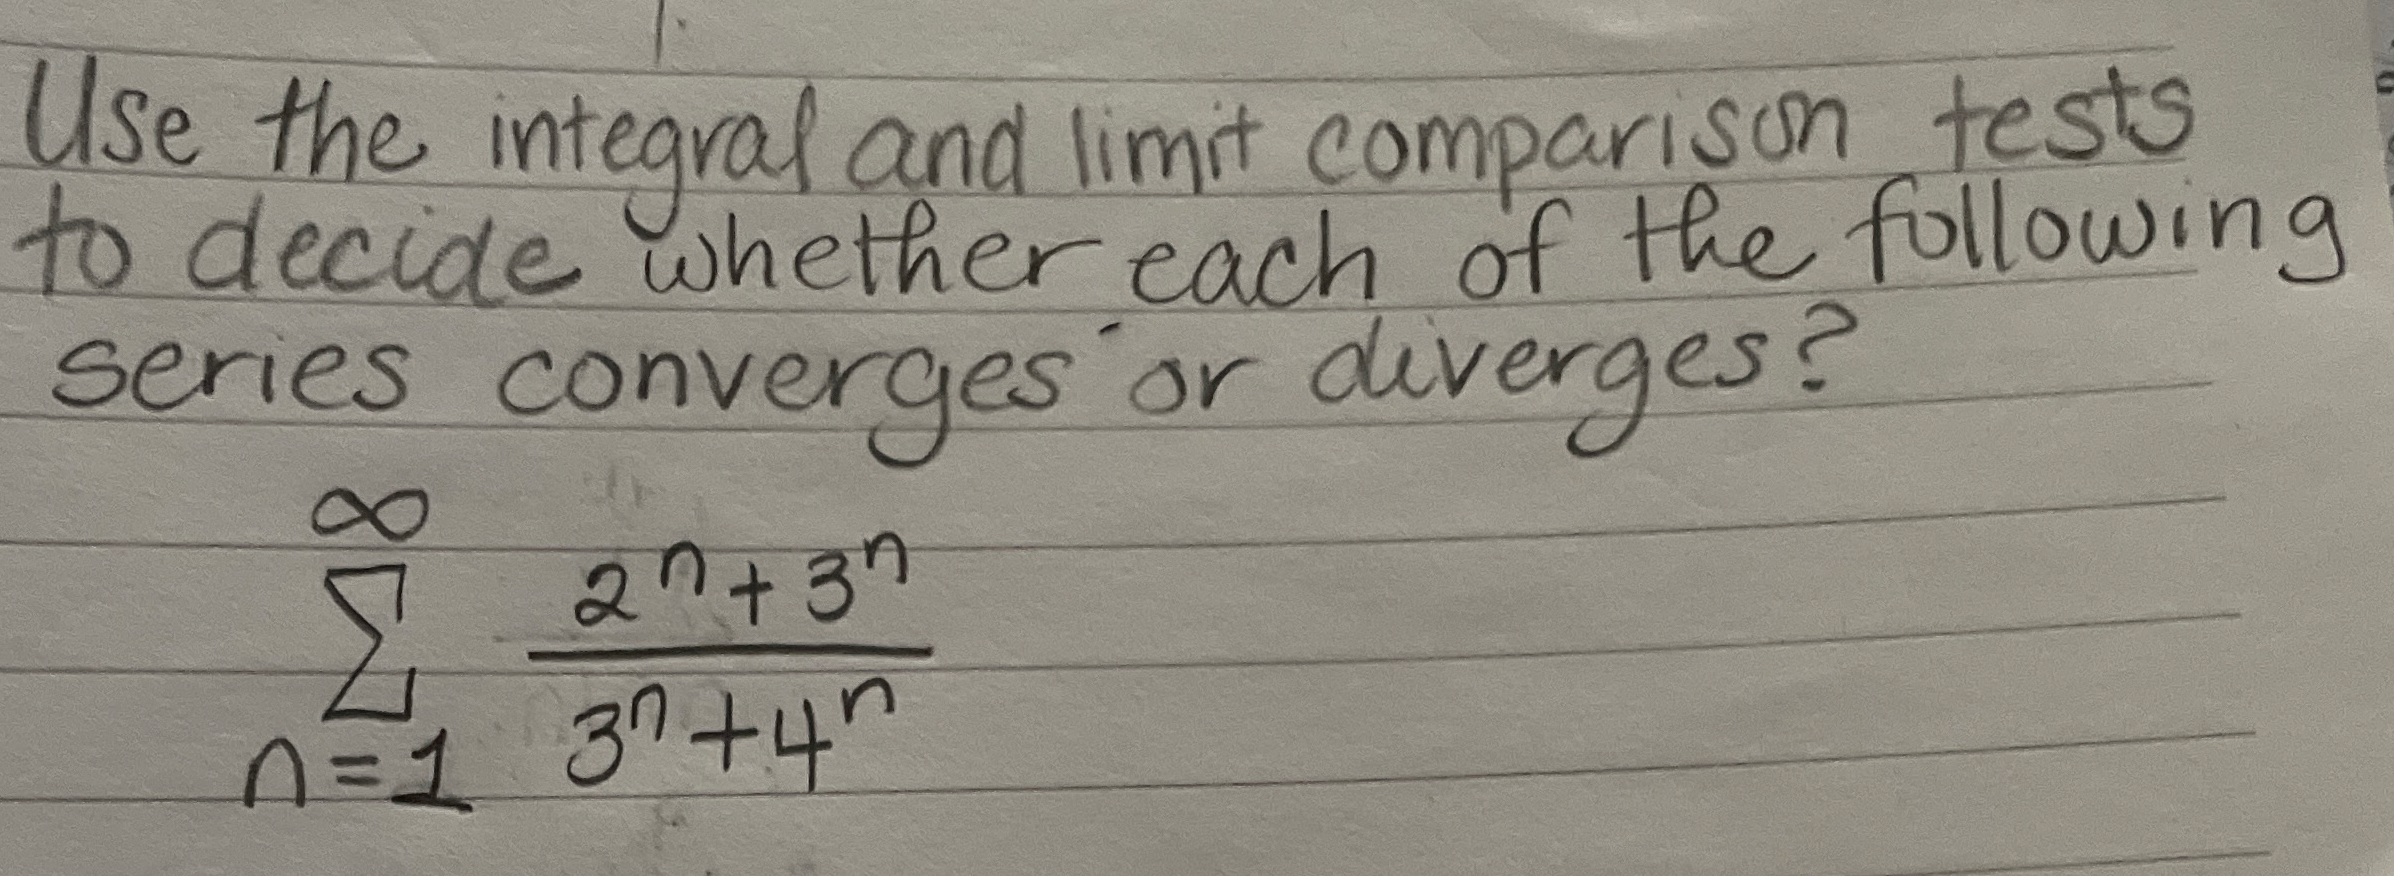 Use the integral and limit comparison tests
to decide whether each of the following
series converges or diverges?
∞
Σ 2^n + 3^n
n = 1 3^n + 4^n